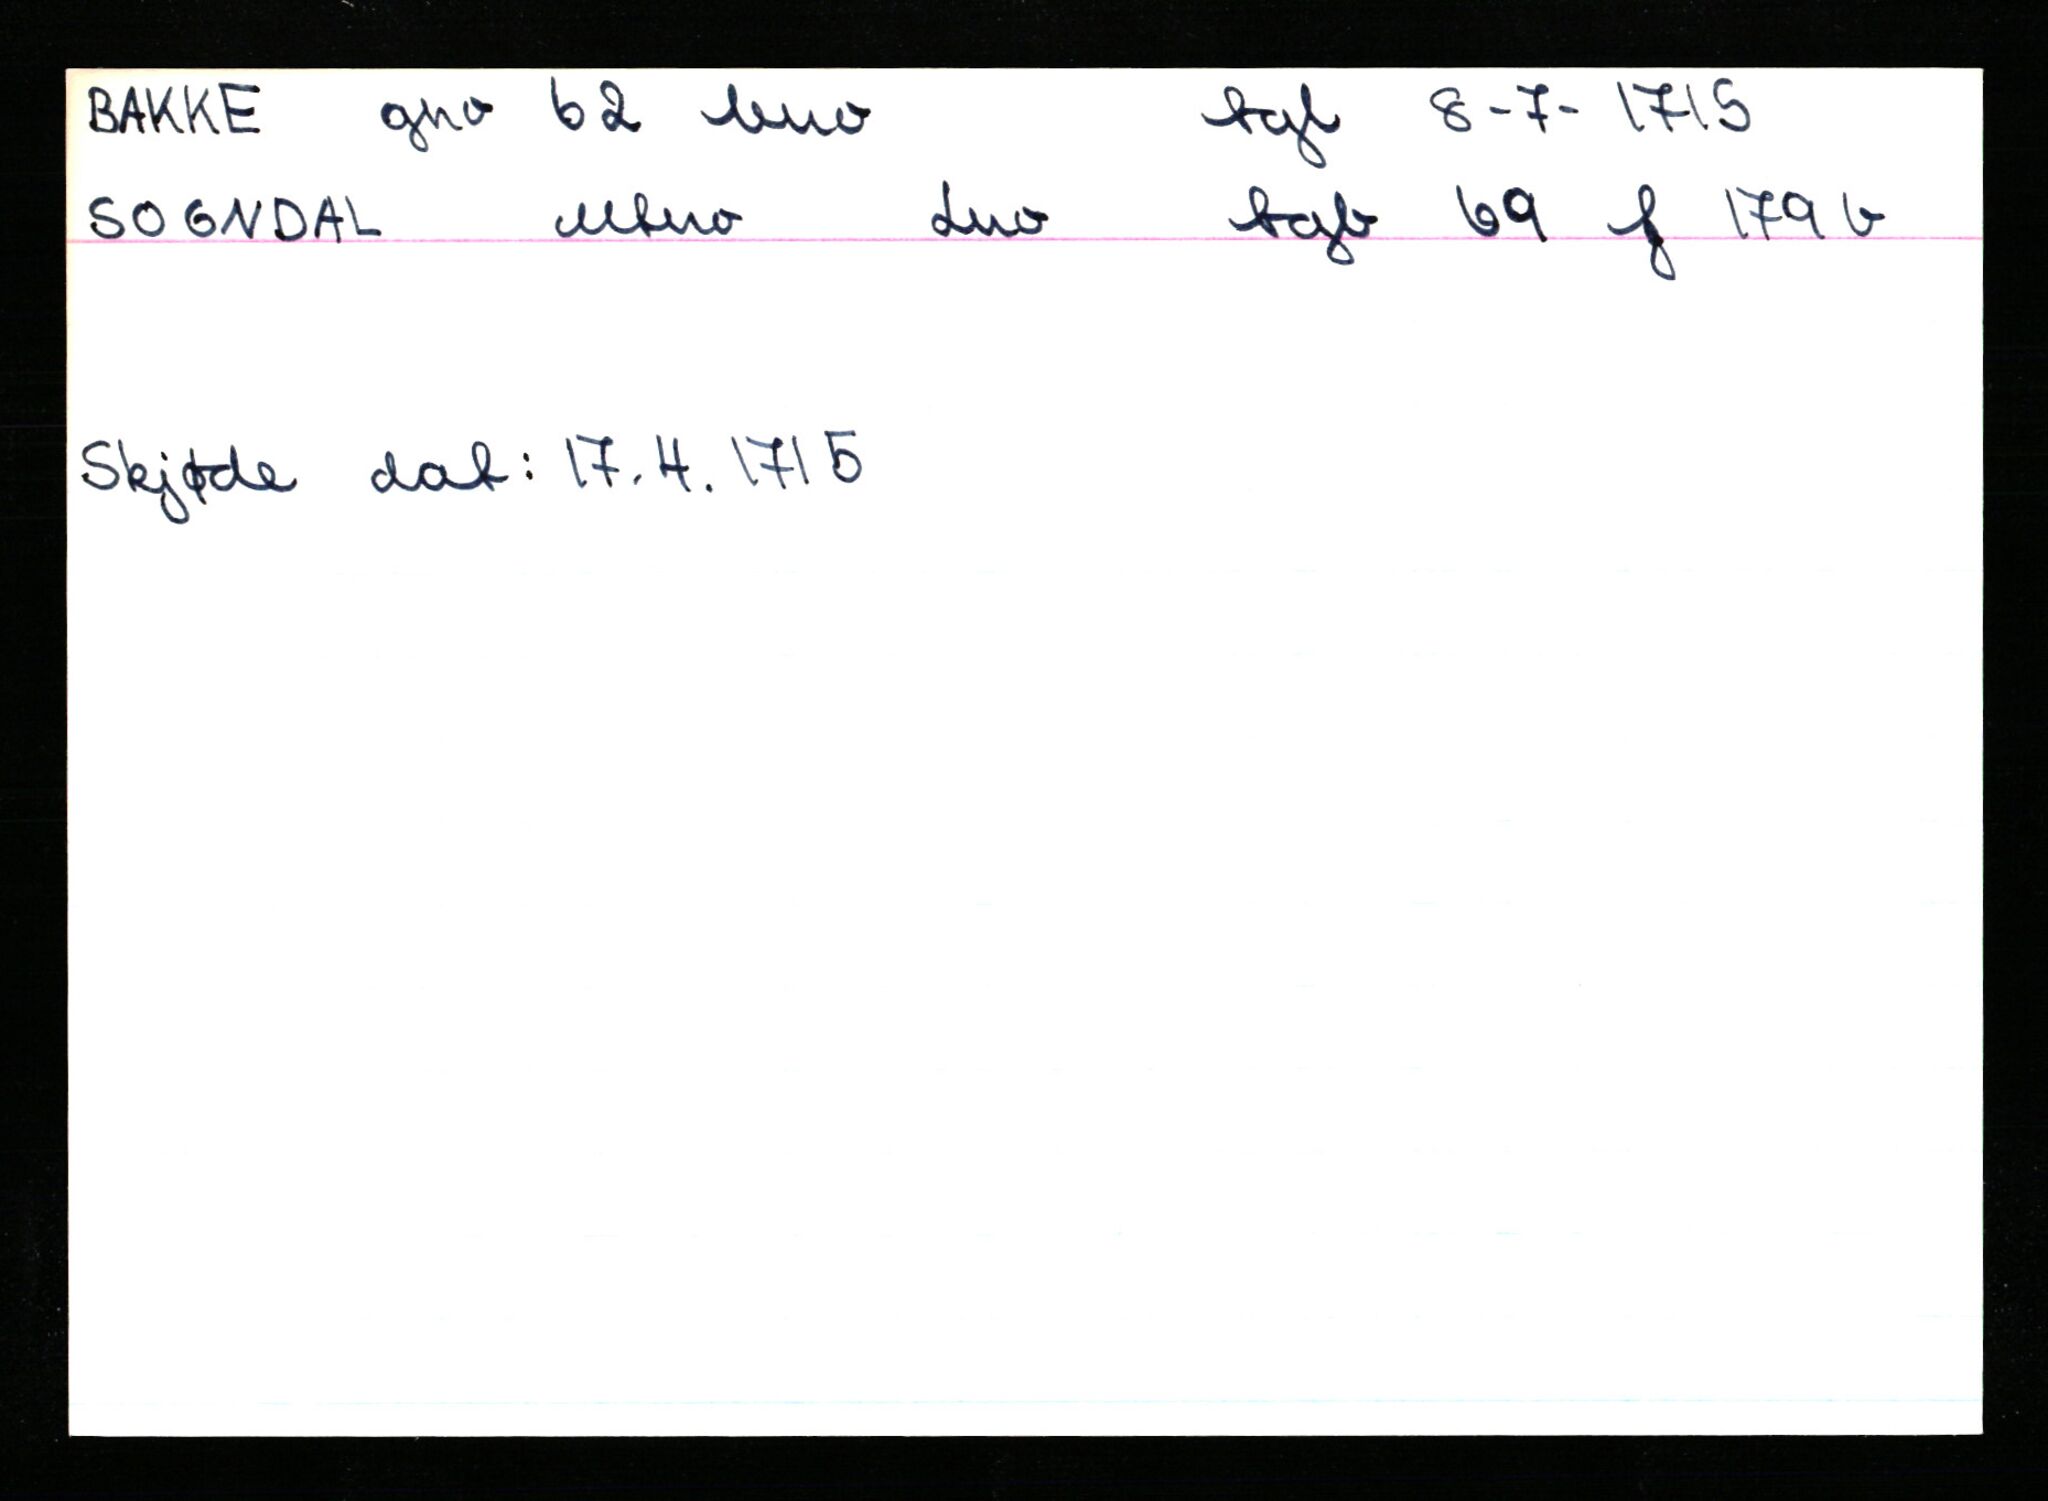 BAKKE gno 62 bno tgl 8-7-1715
SOGNDAL Mtno Lno tgb 69 f 179 b
Skjøde dat: 17.4.1715